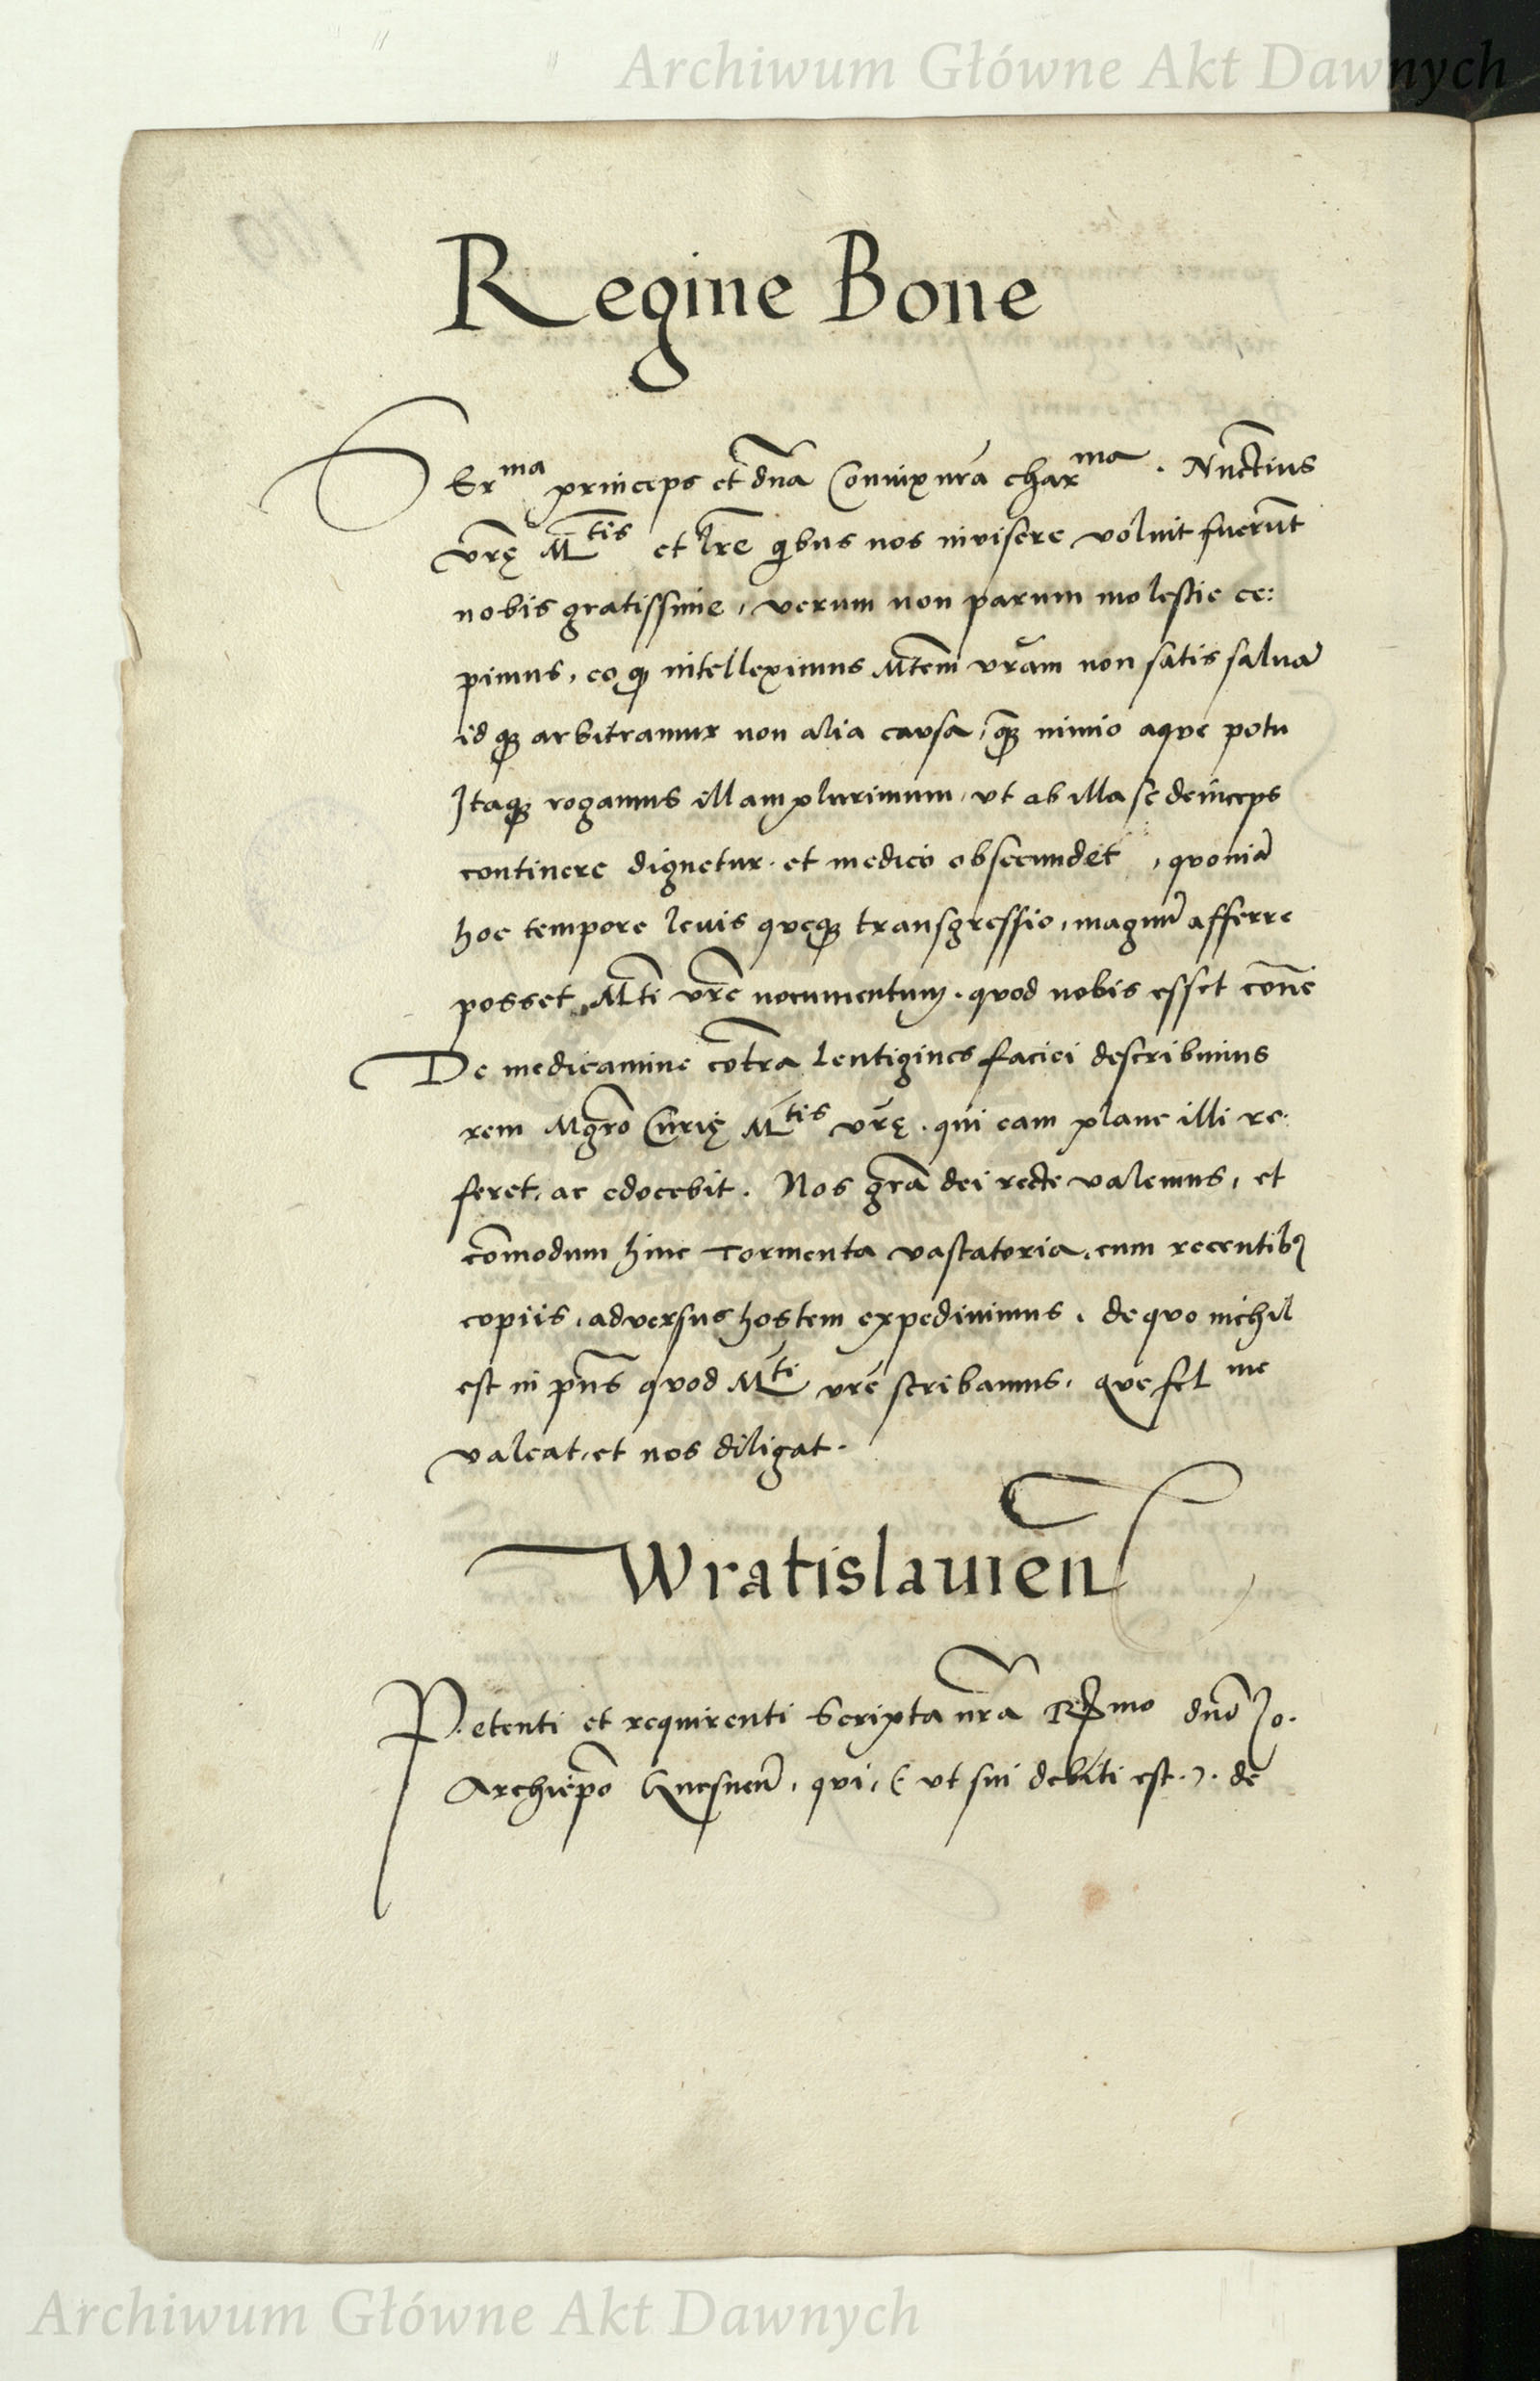 Archiwum Główne Akt Dawnych
Regine Bone
SEr^ma princeps et dña Coniux nrã char^ma. Nuctius
vrę M^tis et lrẽ qbus nos invisere voluit fuerũt
nobis gratissime, verum non parum molestie ce:
pimus, eo q intelleximus Mtem vrãm non satis salvã
id q arbitramur non alia causa, q̃ nimio aque potu
Itaq rogamus illam plurimum, vt ab illa se deinceps
continere dignetur. et medico obsecundet, quoniã
hoc tempore levis queq transgressio, magnũ afferre
posset, Mti vrẽ nocumentum. quod nobis esset cõñe
De medicamine cõtra lentigines faciei describimus
rem Mgrõ Curię M^tis vrę. qui eam plane illi re.
feret, ac edocebit. Nos grã dei recte valemus, et
cõmodum hinc tormenta vastatoria, cum recentib9
copiis, adversus hostem expedivimus, de quo nichil
est in pñs quod M^ti vrẽ scribamus, que fel^me
valeat, et nos diligat.
Wratislavieñ
Petenti et requirenti Scripta nrã R^mo dnõ Jo.
Archiepõ Gnesneñ, qui, (vt sui debiti est.). de
Archiwum Główne Akt Dawnych